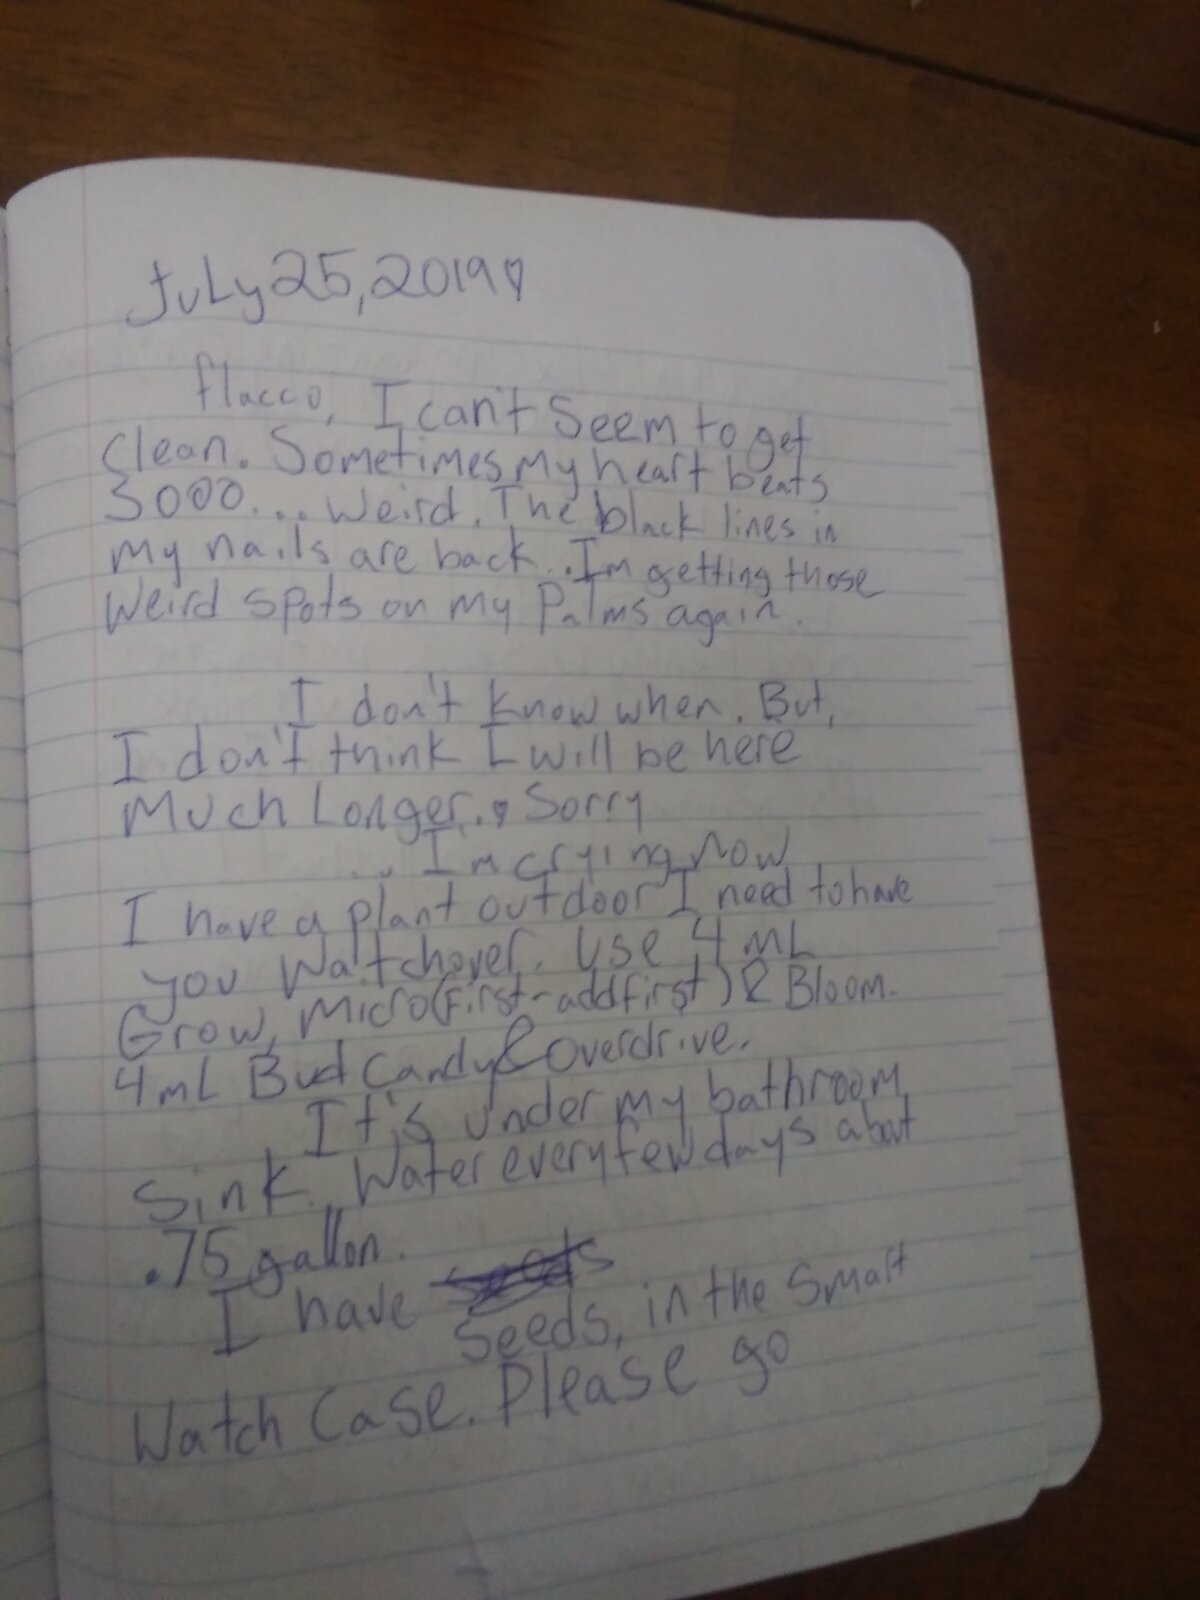 July 25, 2019♡
flacco, I can't Seem to get
Clean. Sometimes my heart beats
Sooo... Weird. The black lines in
my nails are back... Im getting those
Weird spots on my Palms again.
I don't know when. But,
I don't think I will be here
Much Longer..♡ Sorry
... I'm crying now
I have a plant outdoor I need to have
you Watchover. Use 4 mL
Grow, Micro(First-add first) & Bloom.
4mL Bud Candy & Overdrive.
It's under my bathroom
Sink. Water every few days about
.75 gallon.
I have
Seeds, in the Small
Watch Case. Please go